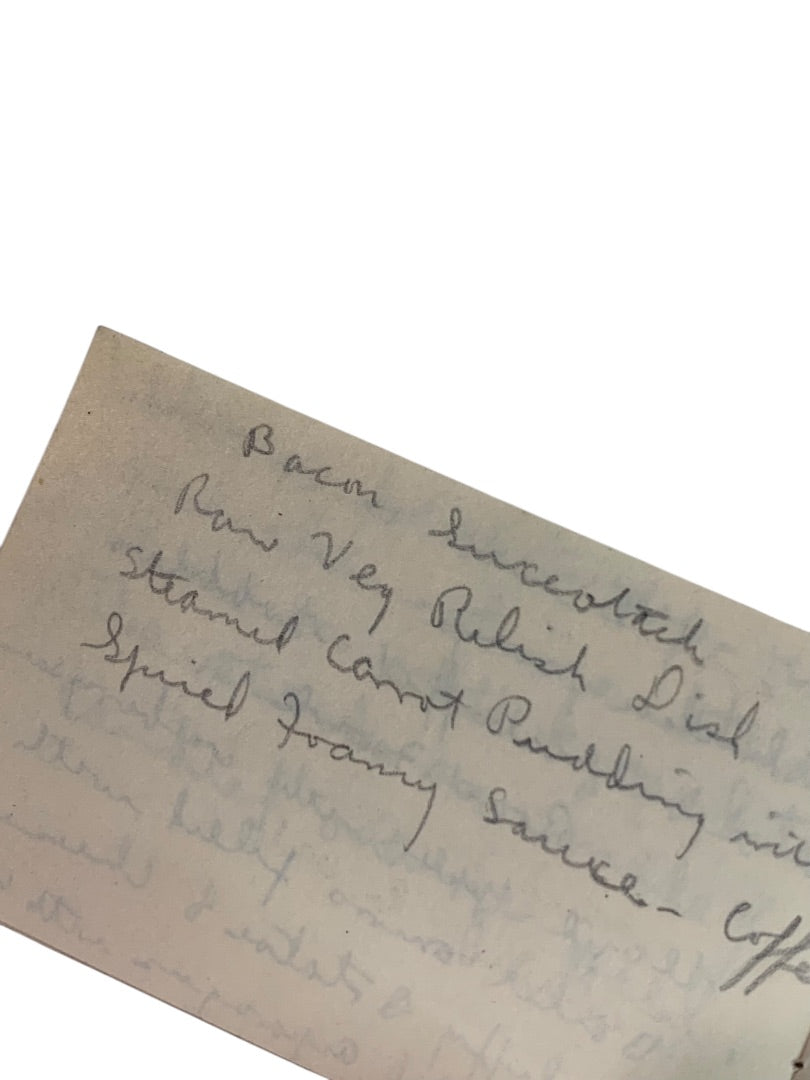 Bacon Succotach
Raw Veg Relish Dish
Steamed Carrot Pudding wit
Spiced Foamy Sauce - Coffe